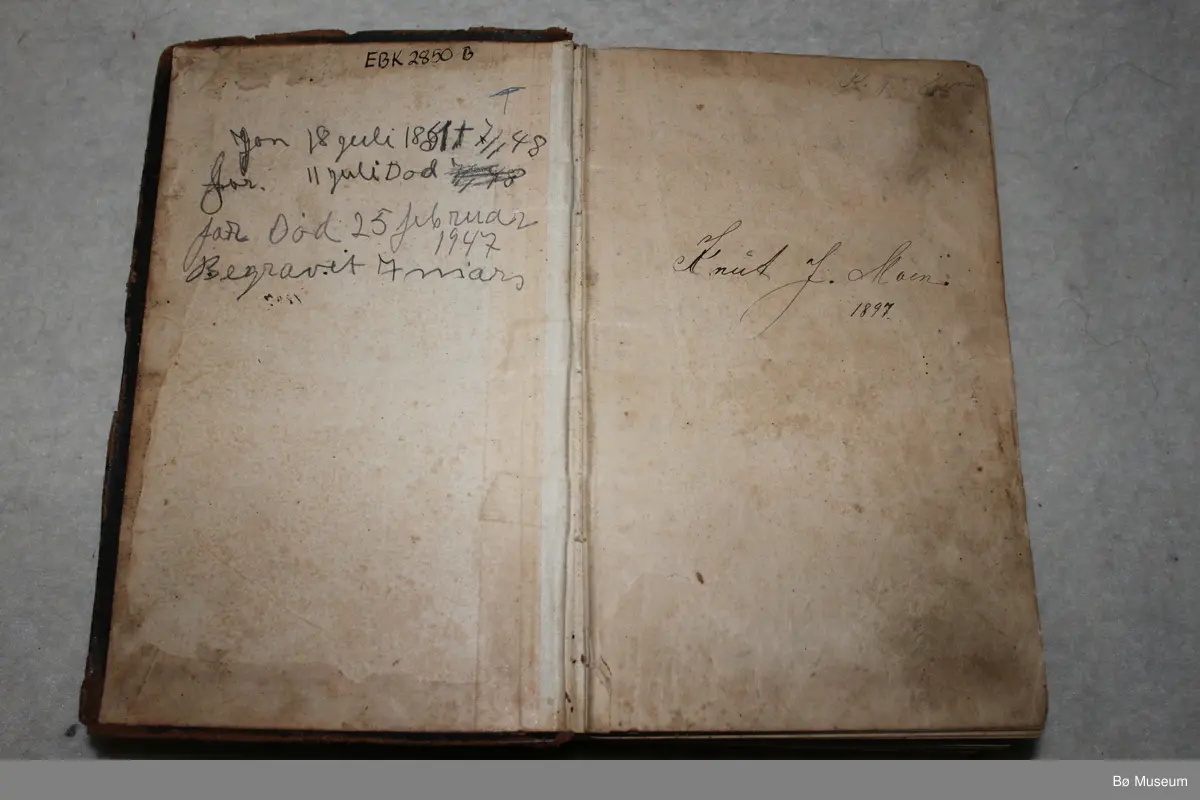 EBK 2850 B
Jon 18 juli 1861 † 7/1, 48
far. 11 juli Død
far Død 25 februar
1947
Begravit 7 mars
Knut J. Moen.
1897.
Bø Museum